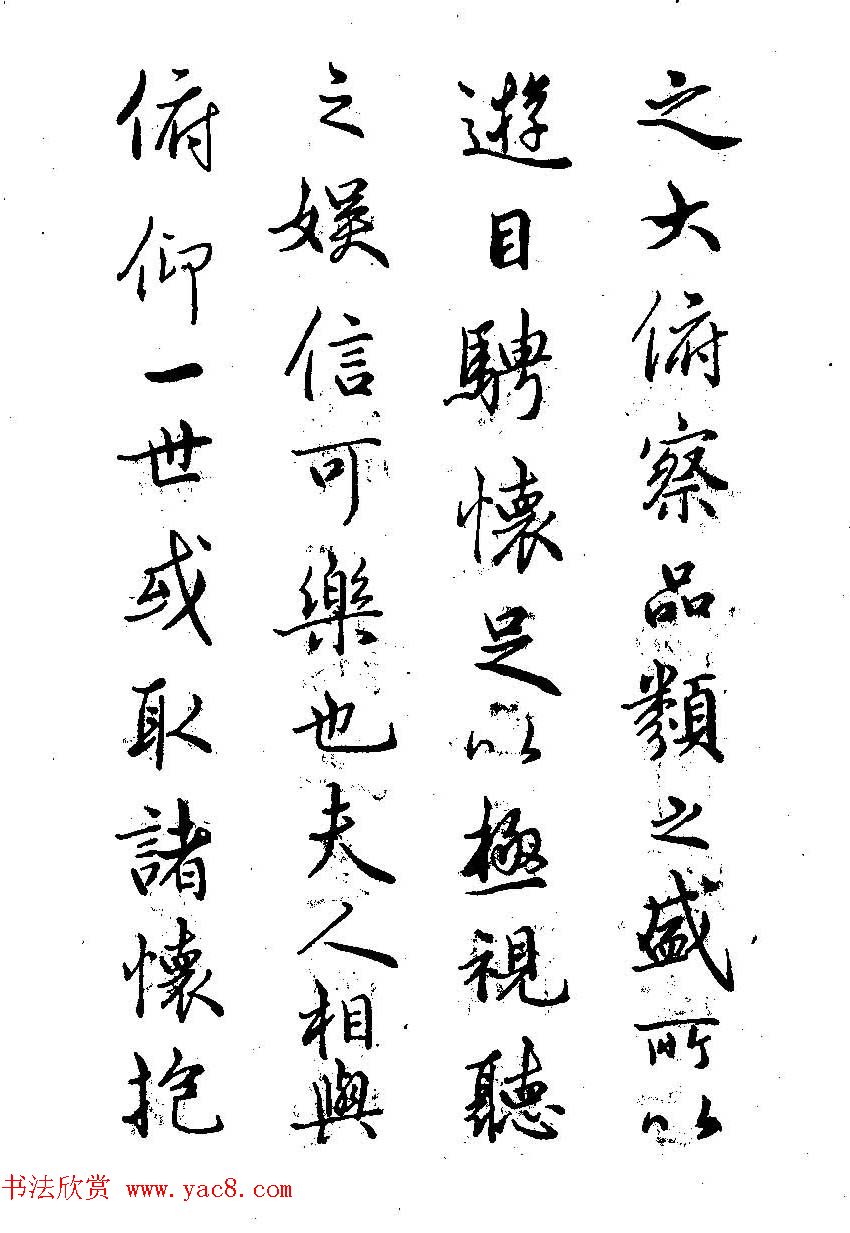 之大俯察品類之盛所以
遊目騁懷足以極視聽
之娛信可樂也夫人相與
俯仰一世或取諸懷抱
书法欣赏 www.yac8.com